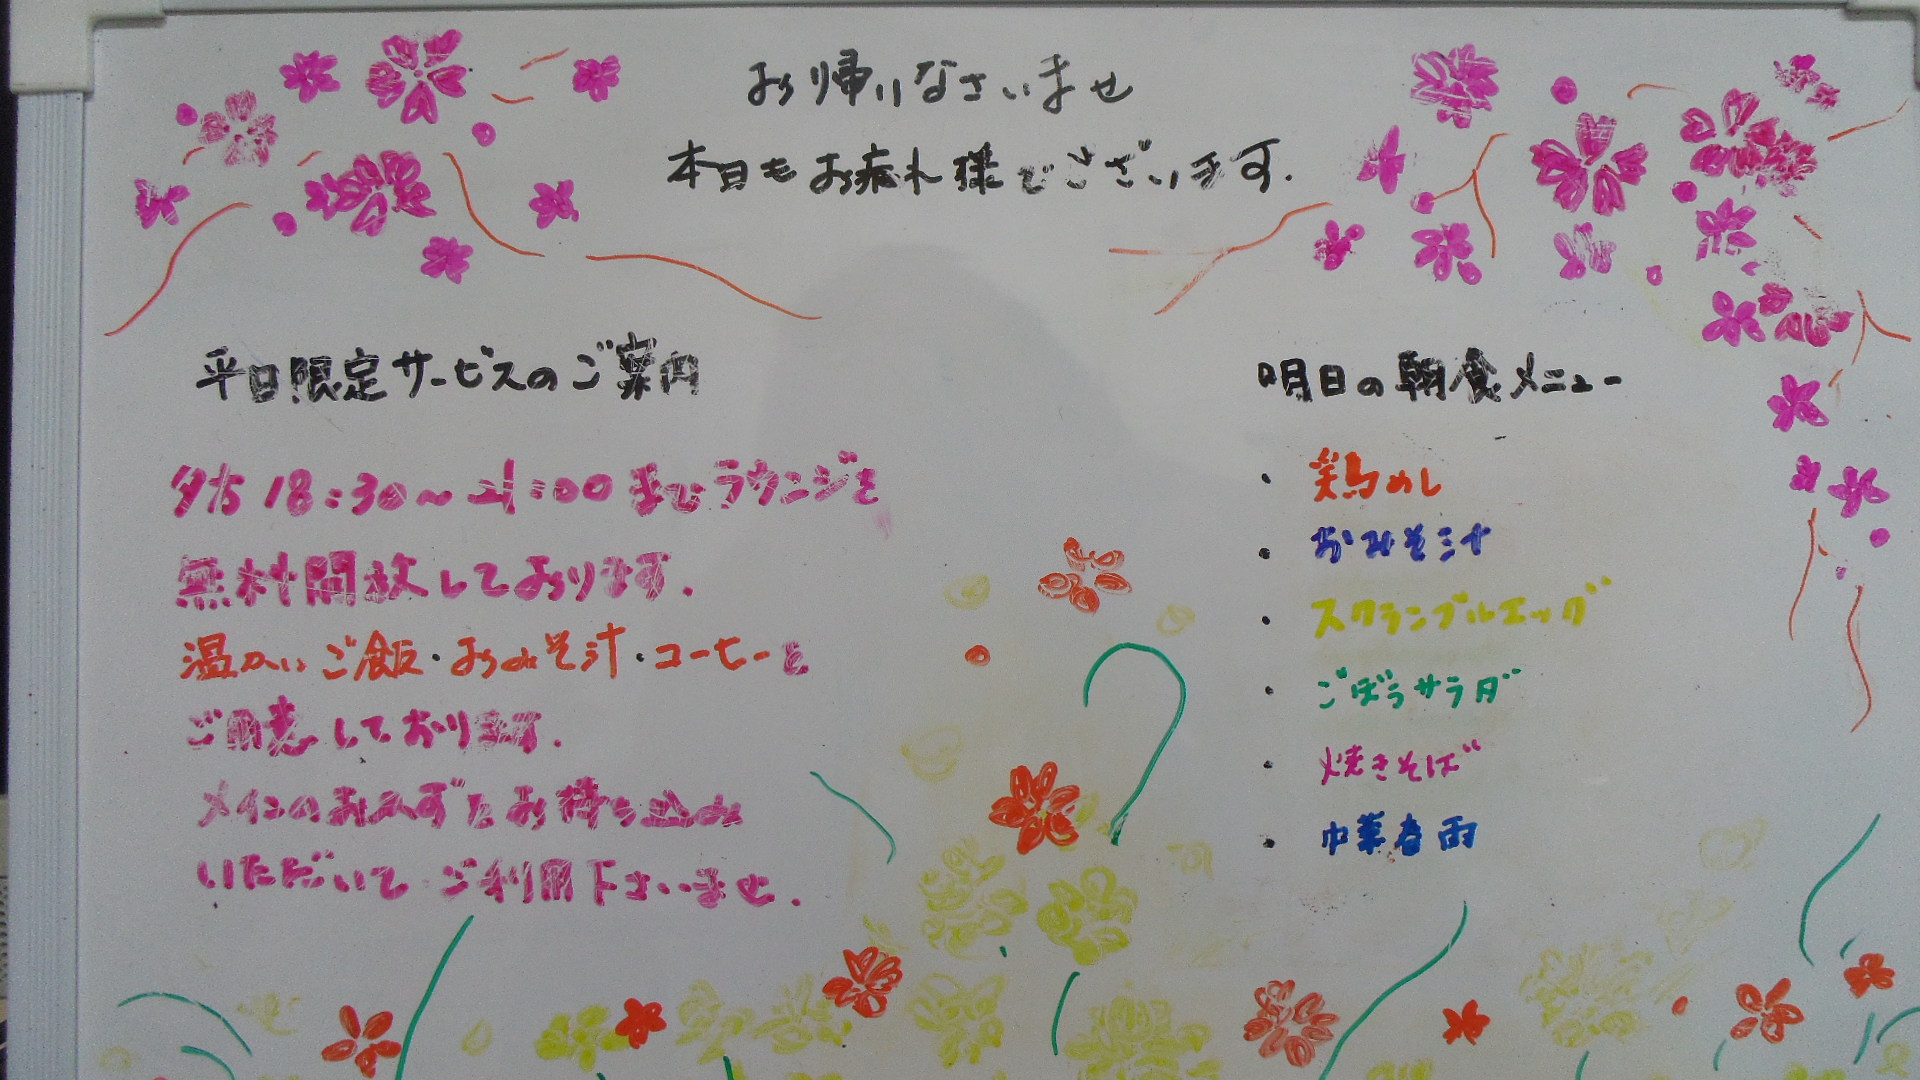 お帰りなさいませ
本日もお疲れ様でございます.
平日限定サービスのご案内
夕方 18:30〜21:00 までラウンジを
無料開放しております.
温かいご飯・おみそ汁・コーヒーを
ご用意しております.
メインのおかずをお持ち込み
いただいてご利用下さいませ.
明日の朝食メニュー
・ 鶏めし
・ おみそ汁
・ スクランブルエッグ
・ ごぼうサラダ
・ 焼きそば
・ 中華春雨